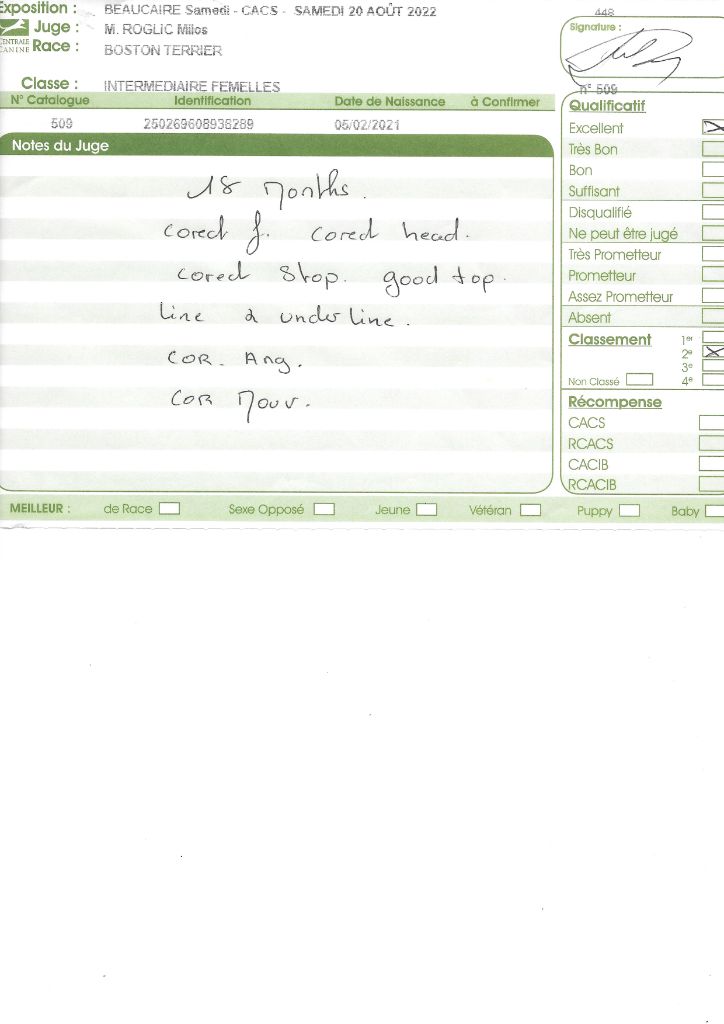 Exposition : BEAUCAIRE Samedi - CACS - SAMEDI 20 AOÛT 2022
Juge : M. ROGLIC Milos
CENTRALE CANINE
Race : BOSTON TERRIER
Classe : INTERMEDIAIRE FEMELLES
448
Signature :
n° 509
N° Catalogue Identification Date de Naissance à Confirmer
509 250269608938289 05/02/2021
Notes du Juge
18 Months.
Corect f. Corect head.
Corect Stop. good top.
Line & underline.
COR. Ang.
COR Mouv.
Qualificatif
Excellent
Très Bon
Bon
Suffisant
Disqualifié
Ne peut être jugé
Très Prometteur
Prometteur
Assez Prometteur
Absent
Classement 1er
2e
3e
Non Classé 4e
Récompense
CACS
RCACS
CACIB
RCACIB
MEILLEUR : de Race Sexe Opposé Jeune Vétéran Puppy Baby